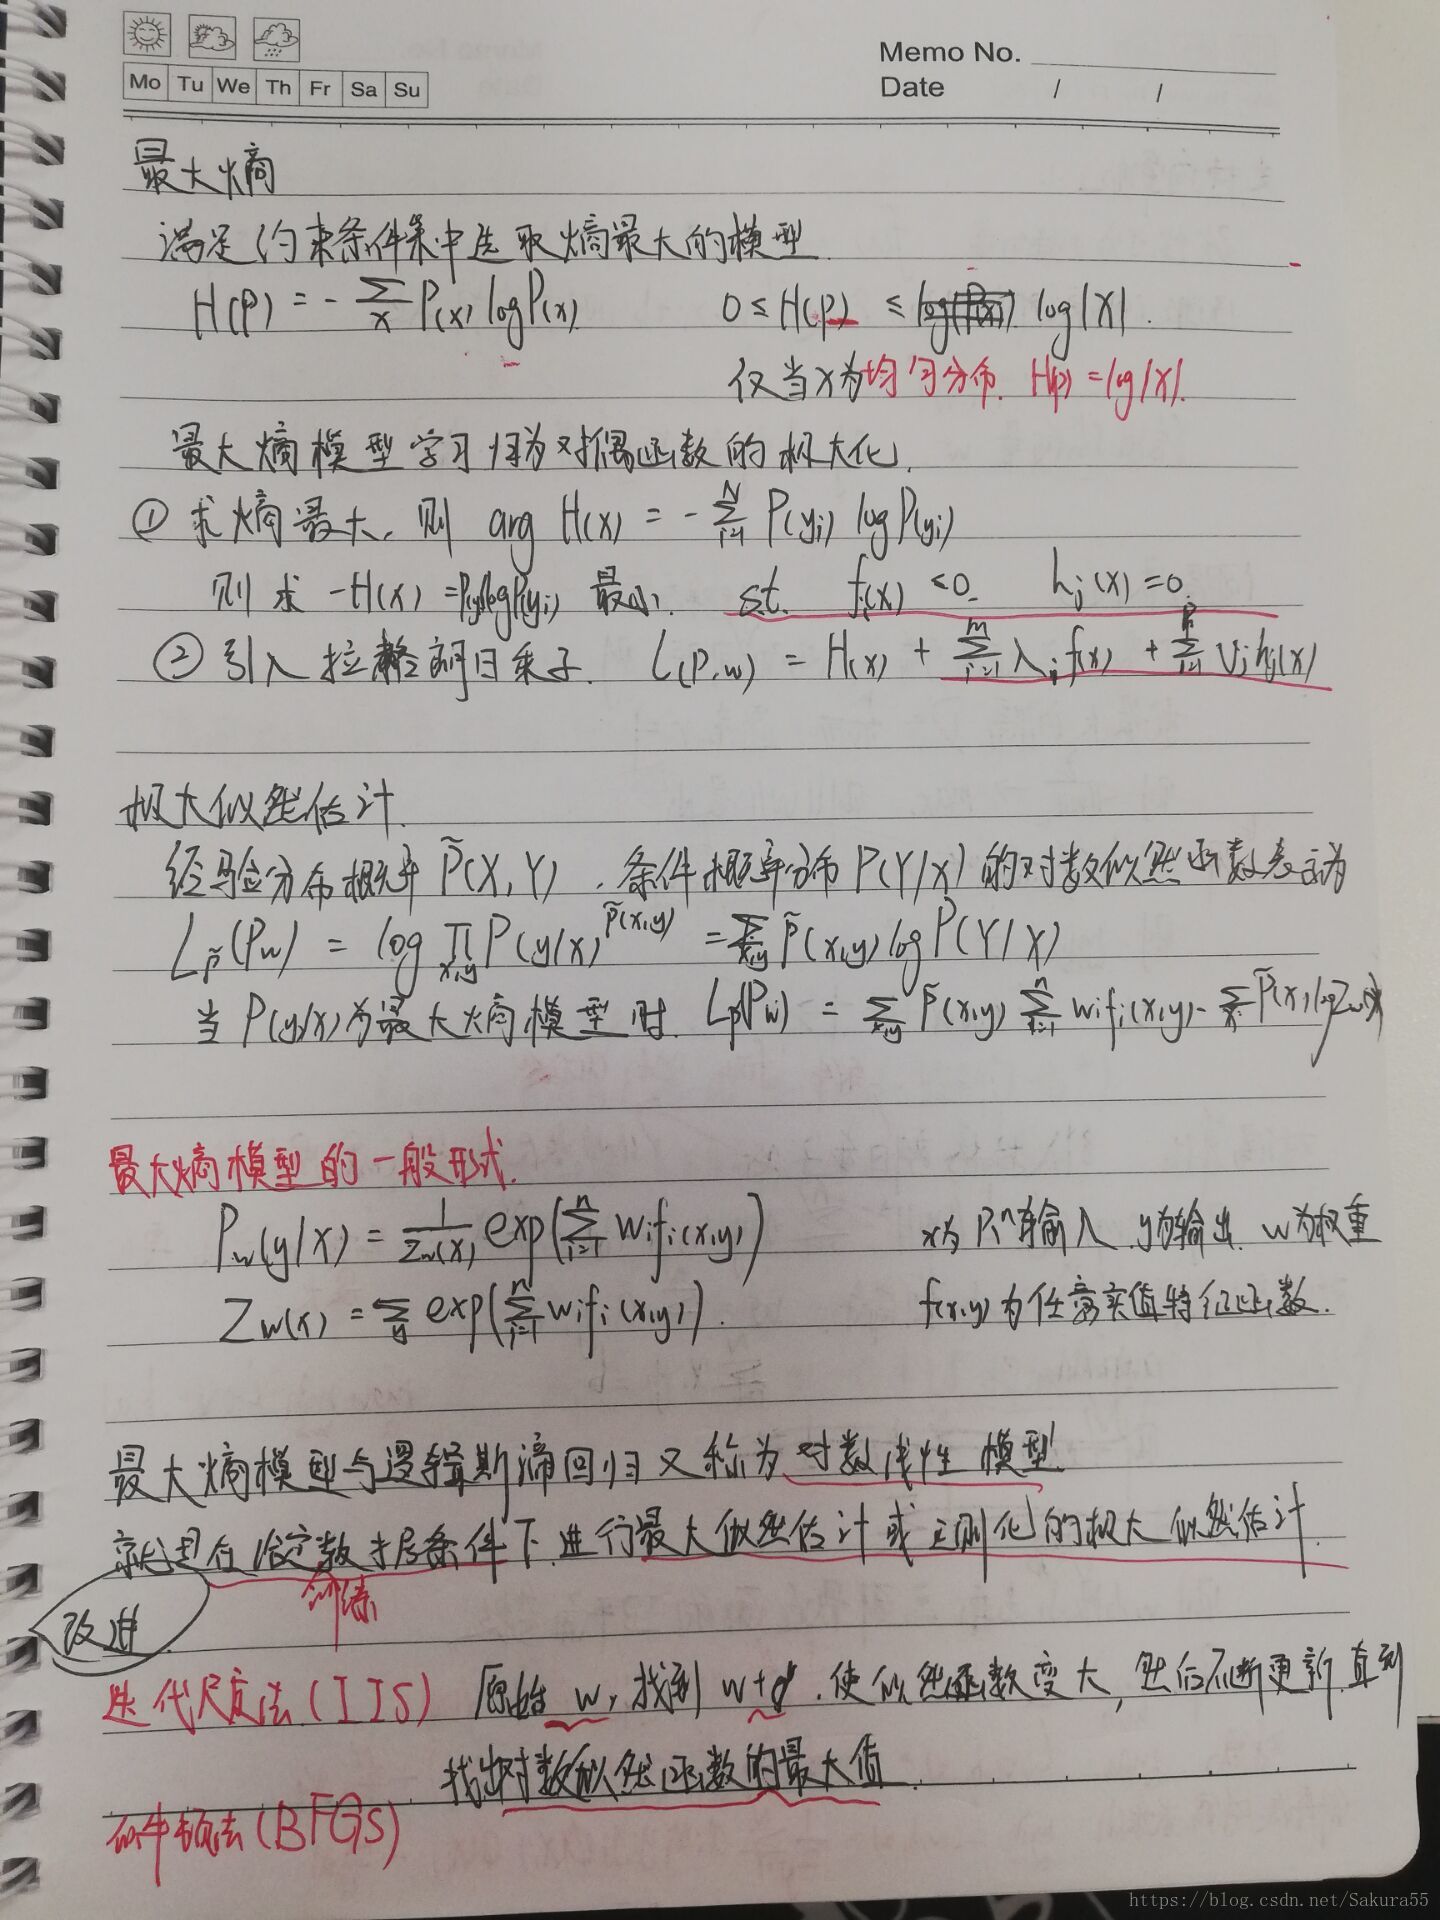 Memo No.
Mo Tu We Th Fr Sa Su
Date / /
最大熵
满足约束条件集中选取熵最大的模型
H(P) = - ∑_x P(x) log P(x)    0 ≤ H(p) ≤ log|X|.
仅当X为均匀分布. H(p) = log|X|.
最大熵模型学习归为对偶函数的极大化.
① 求熵最大. 则 arg H(x) = - ∑_{i=1}^{N} P(yi) log P(yi)
则求 -H(x) = P(yi) log P(yi) 最小. s.t. fi(x) <0. hj(x)=0.
② 引入拉格朗日乘子. L(P,w) = H(x) + ∑_{i=1}^{m} λi f(x) + ∑ Vj hj(x)
极大似然估计.
经验分布概率 P̃(X,Y), 条件概率分布 P(Y/X) 的对数似然函数表示为
L_p̃(Pw) = log ∏_{x,y} P(y/x)^{p̃(x,y)} = ∑_{x,y} P̃(x,y) log P(Y/X)
当 P(y/x) 为最大熵模型时. Lp̃(Pw) = ∑_{x,y} P̃(x,y) ∑_{i=1}^{n} wifi(x,y) - ∑_x P̃(x) log Zw(x)
最大熵模型的一般形式.
Pw(y/x) = 1/Zw(x) exp(∑_{i=1}^{n} wifi(x,y))    x为R^n输入 y为输出. w为权重
Zw(x) = ∑_y exp(∑_{i=1}^{n} wifi(x,y)).    f(x,y)为任意实值特征函数.
最大熵模型与逻辑斯谛回归又称为对数线性模型
就是在给定数据条件下.进行最大似然估计或正则化的极大似然估计.
训练
改进
迭代尺度法(IIS) 原始 w, 找到 w+δ, 使似然函数变大, 然后不断更新.直到
找出对数似然函数的最大值.
拟牛顿法(BFGS)
https://blog.csdn.net/Sakura55